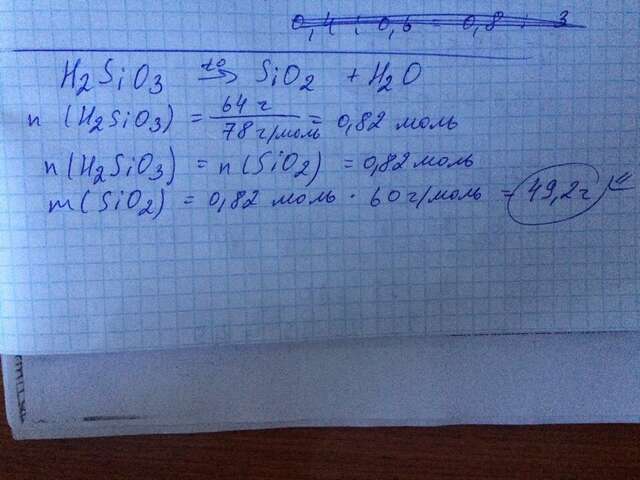 0,4 : 0,6 = 0,8 : 3
H2SiO3 t0→ SiO2 + H2O
n (H2SiO3) = 64 г / 78 г/моль = 0,82 моль
n (H2SiO3) = n (SiO2) = 0,82 моль
m (SiO2) = 0,82 моль · 60 г/моль = 49,2 г